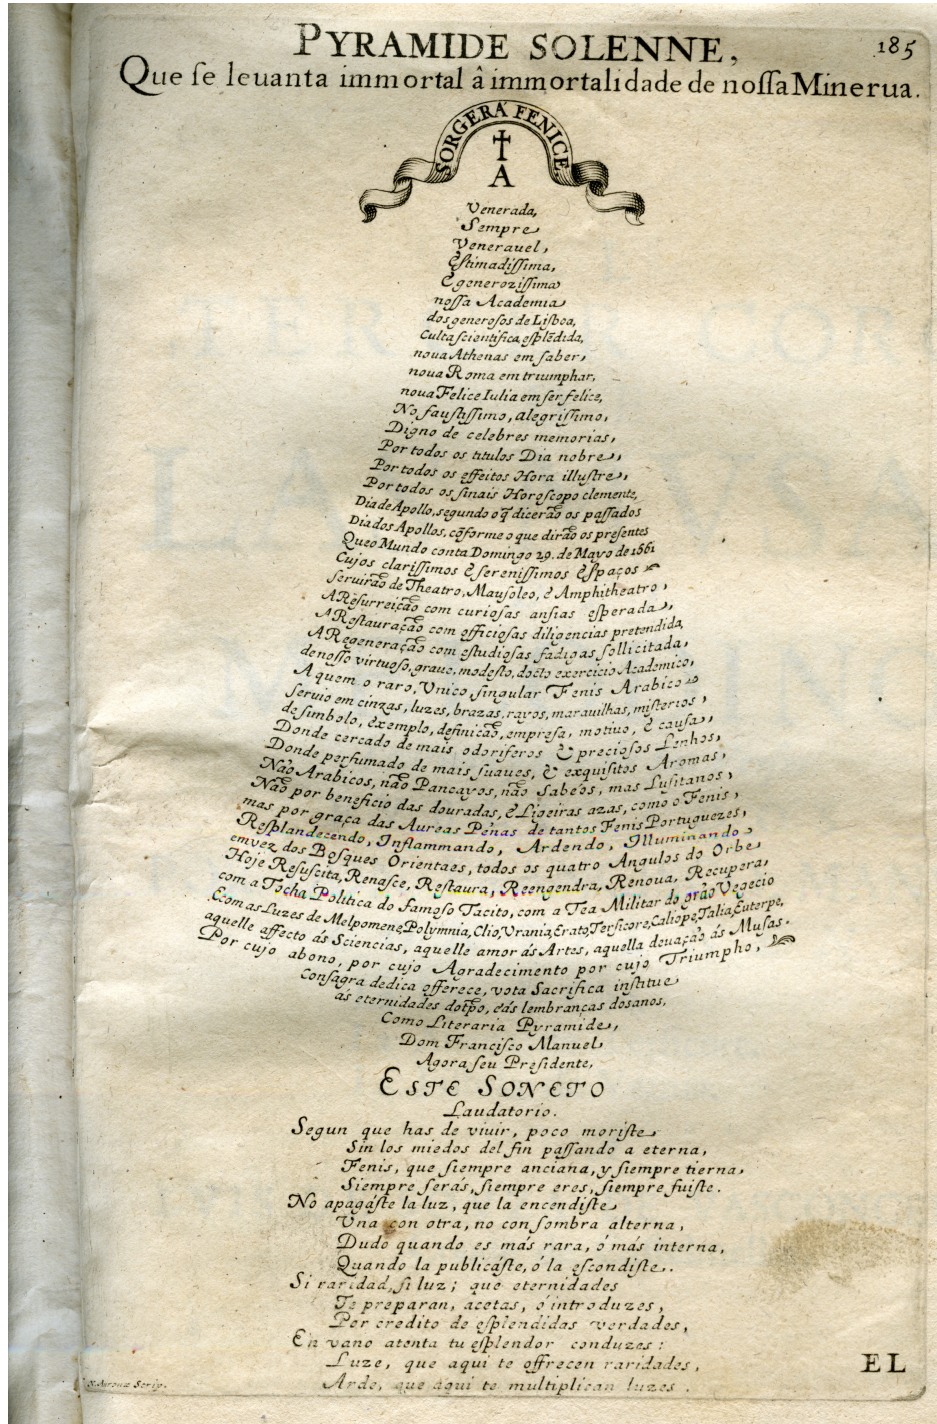 185
PYRAMIDE SOLENNE,
Que se leuanta immortal â immortalidade de nossa Minerua.
SORGERÁ FENICE
†
A
Venerada,
Sempre
Venerauel,
Estimadissima,
E generozissima
nossa Academia
dos generosos de Lisboa,
Culta scientifica esplẽdida,
noua Athenas em saber,
noua Roma em triumphar,
noua Felice Iulia em ser felice,
No faustissimo, alegrissimo,
Digno de celebres memorias,
Por todos os titulos Dia nobre,
Por todos os effeitos Hora illustre,
Por todos os sinais Horoscopo clemente,
Dia de Apollo, segundo o q̃ dicerão os passados
Dia dos Apollos, cõforme o que dirão os presentes
Que o Mundo conta Domingo 29. de Mayo de 1661
Cujos clarissimos e serenissimos Espaços
seruirão de Theatro, Mausoleo, e Amphitheatro,
A Resurreição com curiosas ansias esperada,
A Restauração com officiosas diligencias pretendida,
A Regeneração com estudiosas fadigas sollicitada,
de nosso virtuoso, graue, modesto, docto exercicio Academico,
A quem o raro, Vnico singular Fenis Arabico
seruio em cinzas, luzes, brazas, rayos, marauilhas, misterios,
de simbolo, exemplo, definição, empresa, motiuo, e causa,
Donde cercado de mais odoriferos & preciosos Lenhos,
Donde perfumado de mais suaues, & exquisitos Aromas,
Não Arabicos, não Pancayos, não Sabeos, mas Lusitanos,
Não por beneficio das douradas, e Ligeiras azas, como o Fenis,
mas por graça das Aureas Penas de tantos Fenis Portuguezes,
Resplandecendo, Inflammando, Ardendo, Illuminando
em vez dos Bosques Orientaes, todos os quatro Angulos do Orbe
Hoje Resuscita, Renasce, Restaura, Reengendra, Renoua, Recupera,
com a Tocha Politica do famoso Tacito, com a Tea Militar do grão Vegecio
E com as Luzes de Melpomene, Polymnia, Clio, Vrania, Erato, Tersicore, Caliope, Talia, Euterpe,
aquelle affecto ás Sciencias, aquelle amor ás Artes, aquella deuação ás Musas.
Por cujo abono, por cujo Agradecimento por cujo Triumpho,
Consagra dedica offerece, vota Sacrifica institue
ás eternidades do tp̃o, e ás lembranças dos anos,
Como Literaria Pyramide,
Dom Francisco Manuel
Agora seu Presidente,
ESTE SONETO
Laudatorio.
Segun que has de viuir, poco moriste
Sin los miedos del fin passando a eterna,
Fenis, que siempre anciana, y siempre tierna,
Siempre serás, siempre eres, siempre fuiste.
No apagáste la luz, que la encendiste
Vna con otra, no con sombra alterna,
Dudo quando es más rara, ó más interna,
Quando la publicáste, ó la escondiste.
Si raridad, si luz; que eternidades
Te preparan, acetas, ó introduzes,
Por credito de esplendidas verdades,
En vano atenta tu esplendor conduzes:
Luze, que aqui te offrecen raridades,
Arde, que aqui te multiplican luzes.
EL
Scrip.